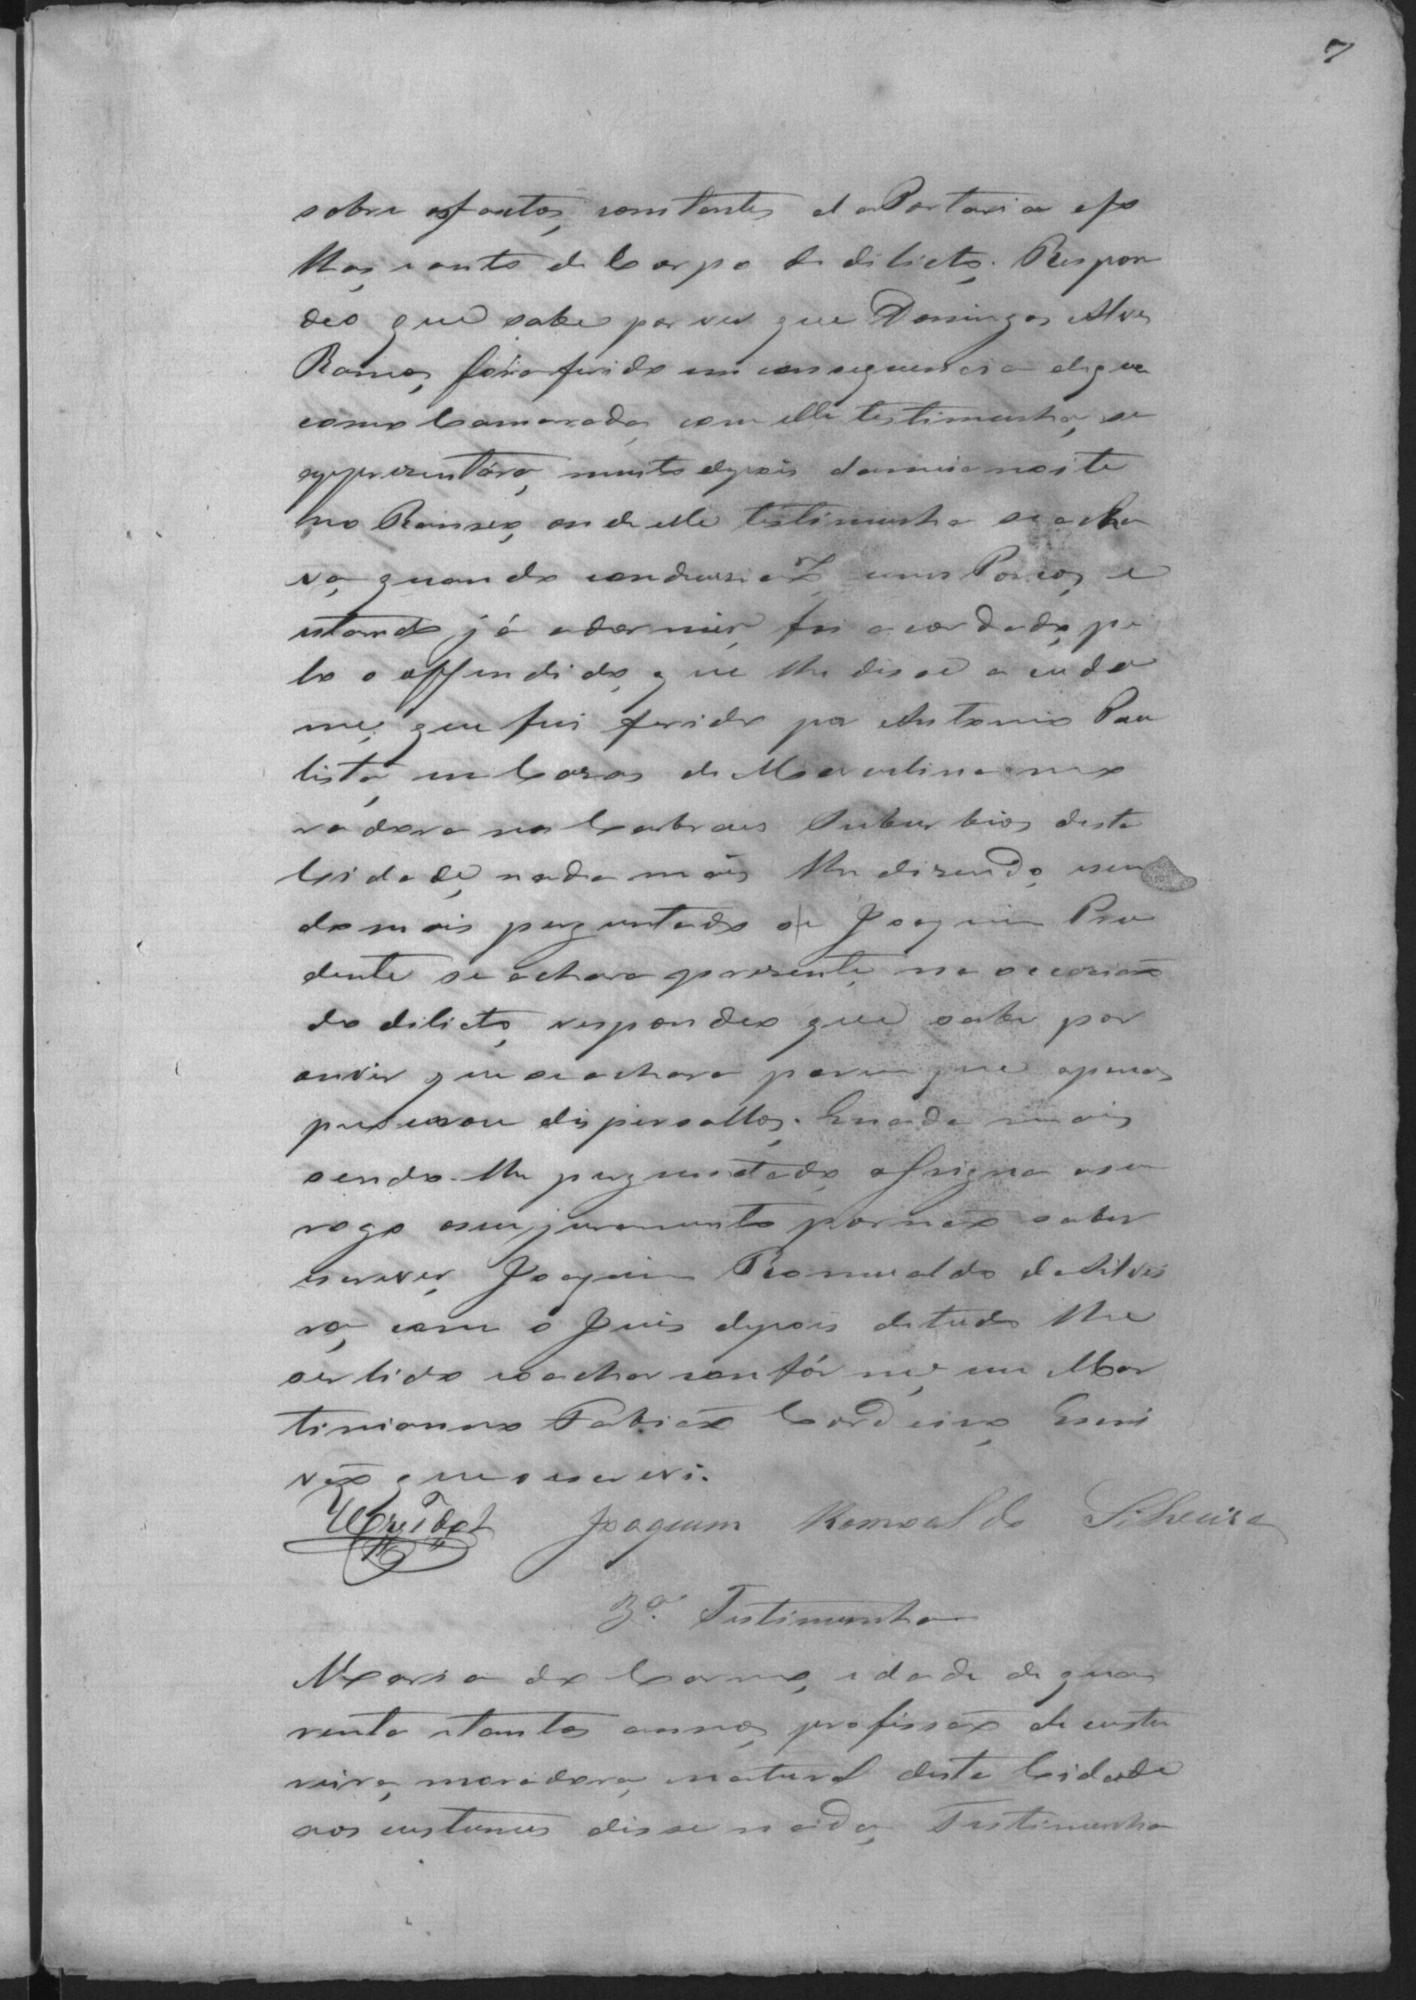 7
sobre os factos constantes da Portaria e fo
lhas e auto de Corpo de dilicto. Respon
deo que sabe por ver que Domingos Alves
Ramos, fôra ferido em consequencia de que
como Camarada, com elle testimunha, se
appresentára, muito depois da meia noite
no Rancho, onde elle testimunha se acha
va, quando condusia uns Porcos, e
estando já a dormir, foi acordado, pe
lo o offendido, que lhe disse acuda
me, que fui ferido por Antonio Pau
lista, em Casas de Marcelina mo
radora nos Suburbios desta
Cidade, nada mais lhe disendo, e sen
do mais perguntado se Joaquim Pru
dente se achava presente, na occasião
do dilicto, respondeo que sabe por
ouvir que se achava porem que apenas
procurou dispersallos. E nada mais
sendo-lhe perguntado, assigna a seu
rogo o seu juramento por não saber
escrever, Joaquim Romualdo da Silvei
ra, com o Juis depois de tudo lhe
ser lido e o achar confórme, eu Mar
timianno Fabião Cordeiro, Escri
vão que o escrevi.
Joaquim Romoaldo Silveira
3ª. Testimunha
Maria do Carmo, idade de qua
renta e tantos annos, profissão de custu
reira, moradora, e natural desta Cidade
aos custumes disse nada, Testimunha